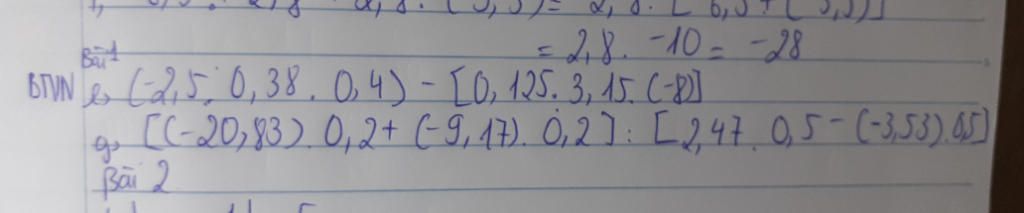 = 2,8. -10 = -28
Bài 1
BTVN e, (-2,5. 0,38. 0,4) - [0,125. 3,15. (-8)]
g, [(-20,83). 0,2 + (-9,17). 0,2] : [2,47. 0,5 - (-3,53). 0,5]
Bài 2